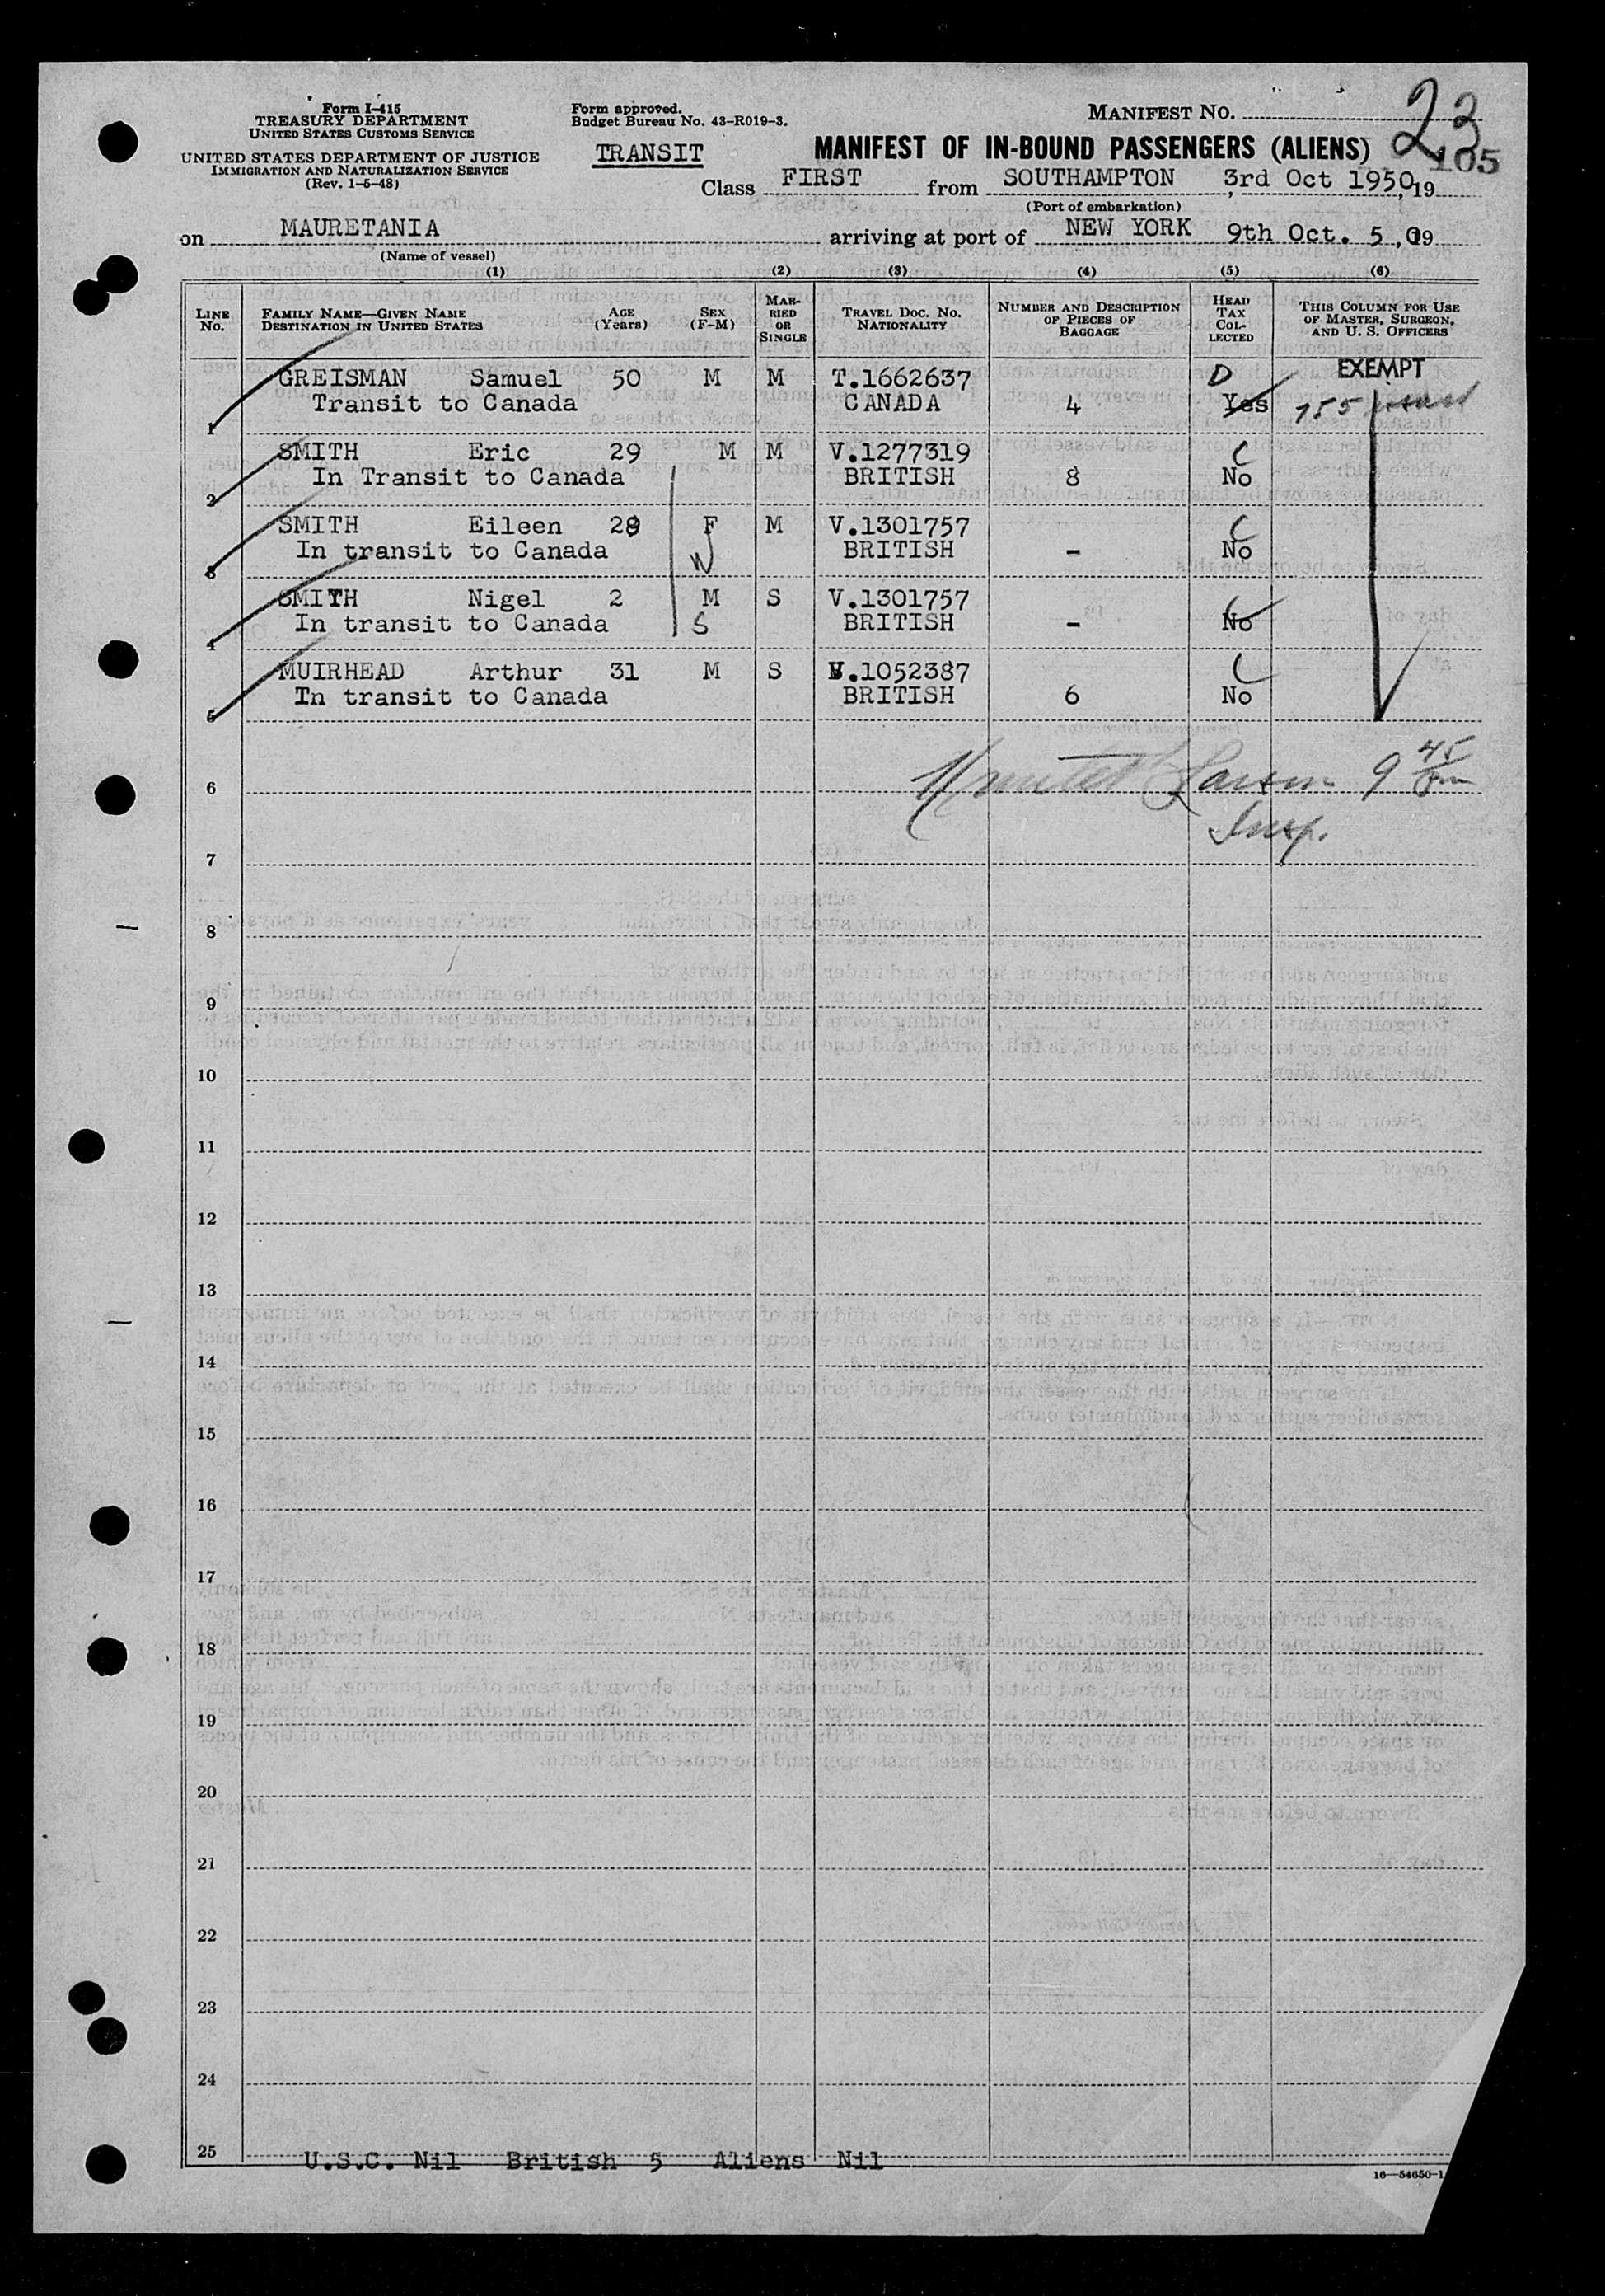 Form I-415
TREASURY DEPARTMENT
UNITED STATES CUSTOMS SERVICE
UNITED STATES DEPARTMENT OF JUSTICE
IMMIGRATION AND NATURALIZATION SERVICE
(Rev. 1-5-48)
Form approved.
Budget Bureau No. 43-R019-3.
TRANSIT
MANIFEST NO.
23
105
MANIFEST OF IN-BOUND PASSENGERS (ALIENS)
Class FIRST from SOUTHAMPTON 3rd Oct 1950, 19
(Port of embarkation)
on MAURETANIA arriving at port of NEW YORK 9th Oct. 5 , 19
(Name of vessel)
(1) (2) (3) (4) (5) (6)
LINE No. FAMILY NAME—GIVEN NAME DESTINATION IN UNITED STATES AGE (Years) SEX (F-M) MARRIED OR SINGLE TRAVEL DOC. NO. NATIONALITY NUMBER AND DESCRIPTION OF PIECES OF BAGGAGE HEAD TAX COLLECTED THIS COLUMN FOR USE OF MASTER, SURGEON, AND U. S. OFFICERS
GREISMAN Samuel 50 M M T.1662637 D EXEMPT
1 Transit to Canada CANADA 4 Yes 155
SMITH Eric 29 M M V.1277319 C
2 In Transit to Canada BRITISH 8 No
SMITH Eileen 28 F M V.1301757 C
3 In transit to Canada W BRITISH - No
SMITH Nigel 2 M S V.1301757 C
4 In transit to Canada S BRITISH - No
MUIRHEAD Arthur 31 M S V.1052387 C
5 In transit to Canada BRITISH 6 No
6 9 45
Insp.
7
8
9
10
11
12
13
14
15
16
17
18
19
20
21
22
23
24
25 U.S.C. Nil British 5 Aliens Nil
16—54650-1